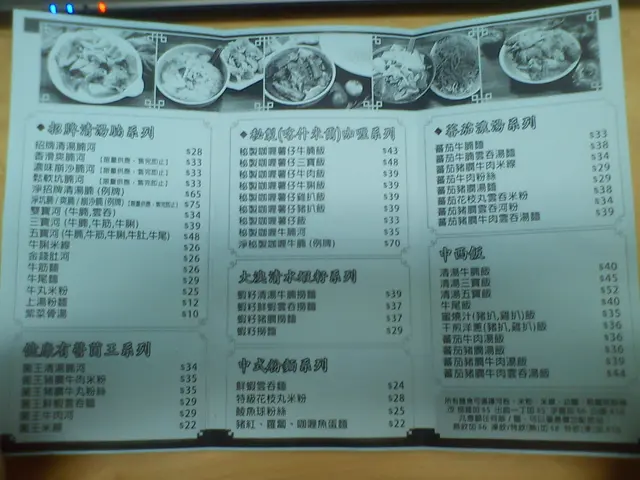 招牌清湯腩系列
招牌清湯腩河 $28
香滑爽腩河 【限量供應，售完即止】 $33
濃味崩沙腩河 【限量供應，售完即止】 $33
鬆軟坑腩河 【限量供應，售完即止】 $33
淨招牌清湯腩 (例牌) $65
淨坑腩/爽腩/崩沙腩(例牌) 【限量供應，售完即止】 $75
雙寶河 (牛腩,雲吞) $34
三寶河 (牛腩,牛筋,牛脷) $39
五寶河 (牛腩,牛筋,牛脷,牛肚,牛尾) $48
牛脷米線 $26
金錢肚河 $26
牛筋麵 $26
牛尾麵 $29
牛丸米粉 $25
上湯粉麵 $12
紫菜骨湯 $10
健康有醬菌王系列
菌王清湯腩河 $34
菌王豬膶牛肉米粉 $35
菌王豬膶牛丸粉絲 $35
菌王鮮蝦雲吞麵 $29
菌王牛肉河 $29
菌王米線 $22
秘製(喳什米爾)咖喱系列
秘製咖喱薯仔牛腩飯 $43
秘製咖喱薯仔三寶飯 $48
秘製咖喱薯仔牛肉飯 $39
秘製咖喱薯仔牛脷飯 $39
秘製咖喱薯仔雞扒飯 $39
秘製咖喱薯仔豬扒飯 $39
秘製咖喱薯仔飯 $33
秘製咖喱牛腩河 $35
淨秘製咖喱牛腩 (例牌) $70
大澳清水蝦籽系列
蝦籽清湯牛腩撈麵 $39
蝦籽鮮蝦雲吞撈麵 $37
蝦籽豬膶撈麵 $37
蝦籽撈麵 $29
中式粉麵系列
鮮蝦雲吞麵 $24
特級花枝丸米粉 $28
鯪魚球粉絲 $25
豬紅、蘿蔔、咖喱魚蛋麵 $22
蕃茄濃湯系列
蕃茄牛腩麵 $33
蕃茄牛腩雲吞湯麵 $38
蕃茄豬膶牛肉米線 $34
蕃茄牛肉粉絲 $29
蕃茄豬膶湯麵 $29
蕃茄花枝丸雲吞米粉 $38
蕃茄豬膶雲吞河粉 $34
蕃茄豬膶牛肉雲吞湯麵 $39
中西飯
清湯牛腩飯 $40
清湯三寶飯 $45
清湯五寶飯 $52
牛尾飯 $40
蜜燒汁(豬扒,雞扒)飯 $35
干煎洋蔥(豬扒,雞扒)飯 $36
蕃茄牛肉湯飯 $36
蕃茄豬膶湯飯 $36
蕃茄豬膶牛肉湯飯 $39
蕃茄豬膶牛肉雲吞湯飯 $44